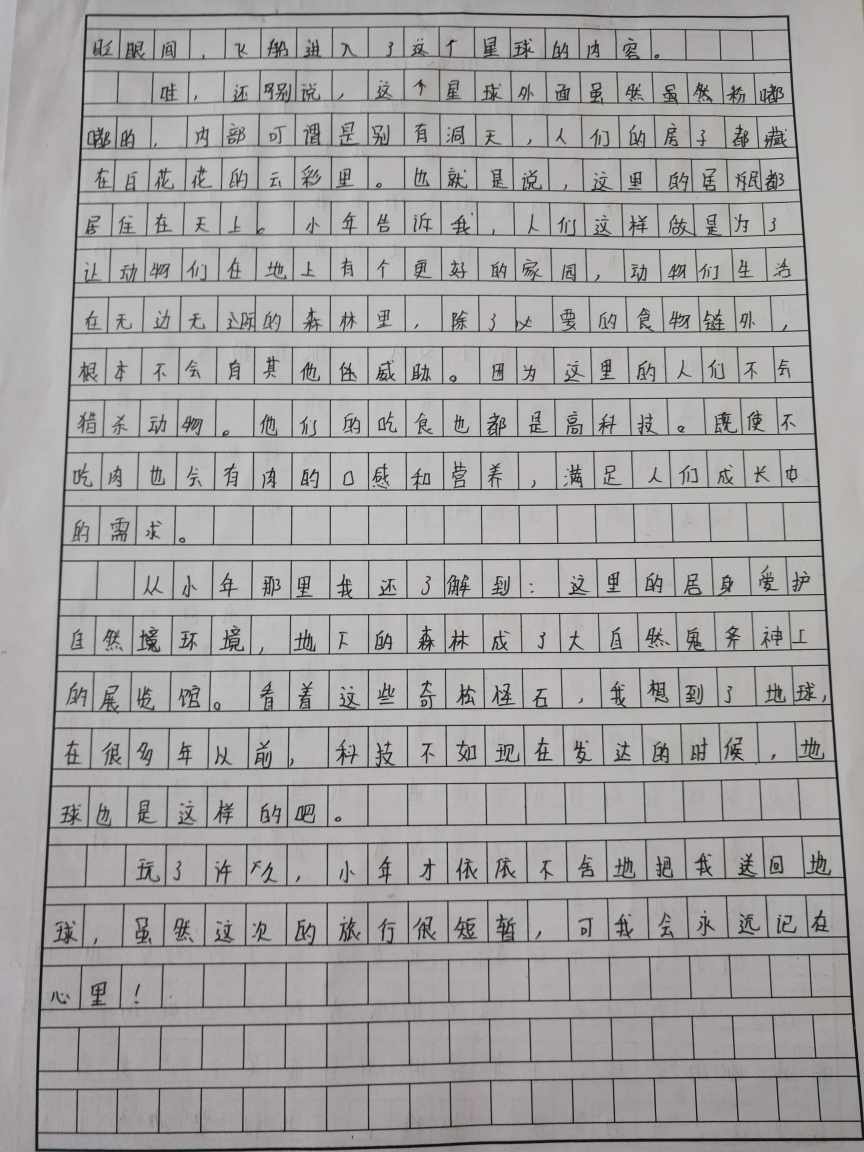 眨眼间，飞船进入了这个星球的内容。
哇，还别说，这个星球外面虽然虽然粉嘟
嘟的，内部可谓是别有洞天，人们的房子都藏
在白花花的云彩里。也就是说，这里的居民都
居住在天上。小年告诉我，人们这样做是为了
让动物们在地上有个更好的家园，动物们生活
在无边无际的森林里，除了必要的食物链外，
根本不会有其他威胁。因为这里的人们不会
猎杀动物。他们的吃食也都是高科技。既使不
吃肉也会有肉的口感和营养，满足人们成长中
的需求。
从小年那里我还了解到：这里的居身爱护
自然境环境，地下的森林成了大自然鬼斧神工
的展览馆。看着这些奇松怪石，我想到了地球，
在很多年以前，科技不如现在发达的时候，地
球也是这样的吧。
玩了许久，小年才依依不舍地把我送回地
球，虽然这次的旅行很短暂，可我会永远记在
心里！